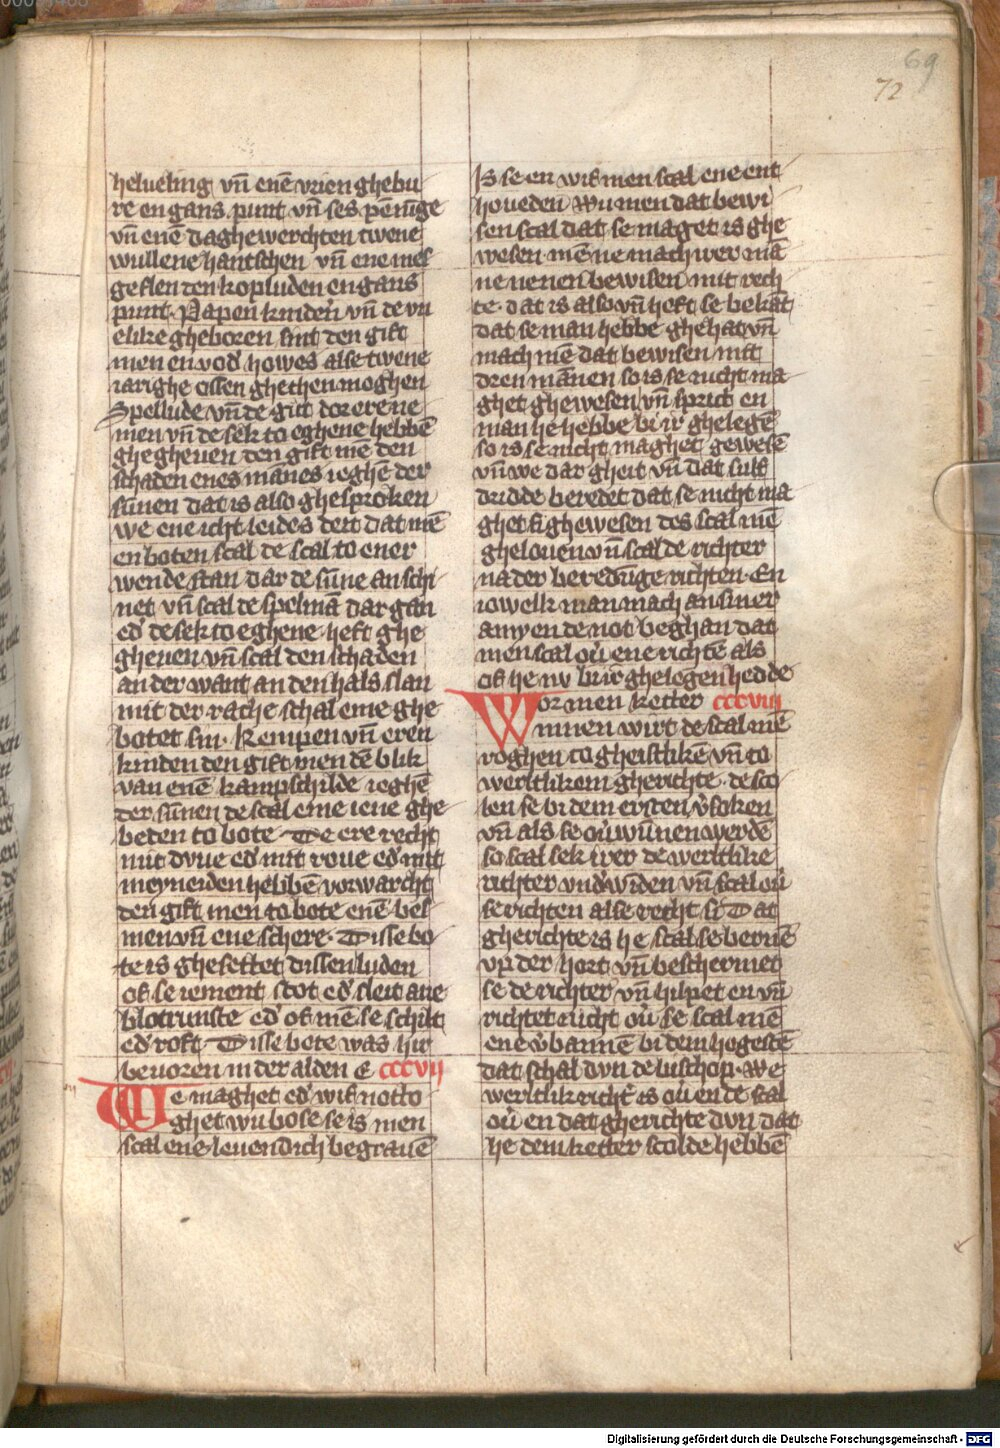 69
72
helueling vn̄ enē vrien ghebu
re en gans punt vn̄ ses pēnīge
vn̄ enē daghewerchten twene
wullene hantschen vn̄ ene mes
geflen den kopluden en gans
punt. Papen kinden̄ vn̄ de vn
elike gheboren sint den gift
men en vod̄ howes alse twene
iarighe ossen ghethen moghen
Spellude vn̄ de gut dor ere ne
men vn̄ de sek to eghene hebbē
ghegheuen den gift mē den
schaden enes mānes ieghē der
sūnen dat is also ghesproken
we ene icht leides deit dat mē
en boten scal de scal to ener
wende stan dar de sūne an schi
net vn̄ scal de spelmā dar gan
ed̄ de sek to eghene heft ghe
gheuen vn̄ scal den schaden
an der want an den hals slan
mit der rache schal eme ghe
botet sin. Kempen vn̄ eren
kinden den gift men dē blik
van enē kampschilde ieghē
der sūnen de scal eme iene ghe
beden to bote De ere recht
mit dvue ed̄ mit roue ed̄ mit
meyneiden hebbē vorwarcht
den gift men to bote enē bes
men vn̄ ene schere. Disse bo
te is ghesettet dissen luden
of se iement stot ed̄ sleit ane
blotrunste ed̄ of mē se schilt
ed̄ roft Disse bote was hir
beuoren in der alden e cccvii
We maghet ed̄ wif notto
ghet wu bose se is men
scal ene leuendich begrauē
Is se en wif men scal ene ent
houeden Wu men dat bewi
sen scal dat se maget is ghe
wesen mē ne mach wer mā
ne nenen bewisen mit rech
te. dat is also vn̄ heft se bekāt
dat se man hebbe ghehat vn̄
mach mē dat bewisen mit
dren mānen so is se nicht ma
ghet ghewesen vn̄ sprict en
man he hebbe bi ir ghelegē
so is se nicht maghet gewesē
vn̄ we dar gheit vn̄ dat sulf
dridde beredet dat se nicht ma
ghet si ghewesen des scal mē
ghelouen vn̄ scal de richter
na der beredīge richten. En
iowelk man mach an siner
amyen de not beghan dat
men scal ou̓ ene richtē als
of he nv bi ir ghelegen hedde
Wor men ketter cccviii
innen wirt de scal mē
wroghen to gheistlikē vn̄ to
werltlikem gherichte. de sco
len se bi dem ersten v̓soken
vn̄ als se ou̓wūnen werdē
so scal sek irer de werltlike
richter vnd̓wīden vn̄ scal ou̓
se richten alse recht si Dat
gherichte is he scal se bernē
vp der hort vn̄ beschermet
se de richter vn̄ hilpet en vn̄
richtet nicht ou̓ se scal mē
ene v̓bannē bi dem hogestē
dat schal dvn de bischop. We
werltlik richt̓ is ou̓ en dē scal
ou̓ en dat gherichte dvn dat
he dem ketter scolde hebbē
Digitalisierung gefördert durch die Deutsche Forschungsgemeinschaft - DFG